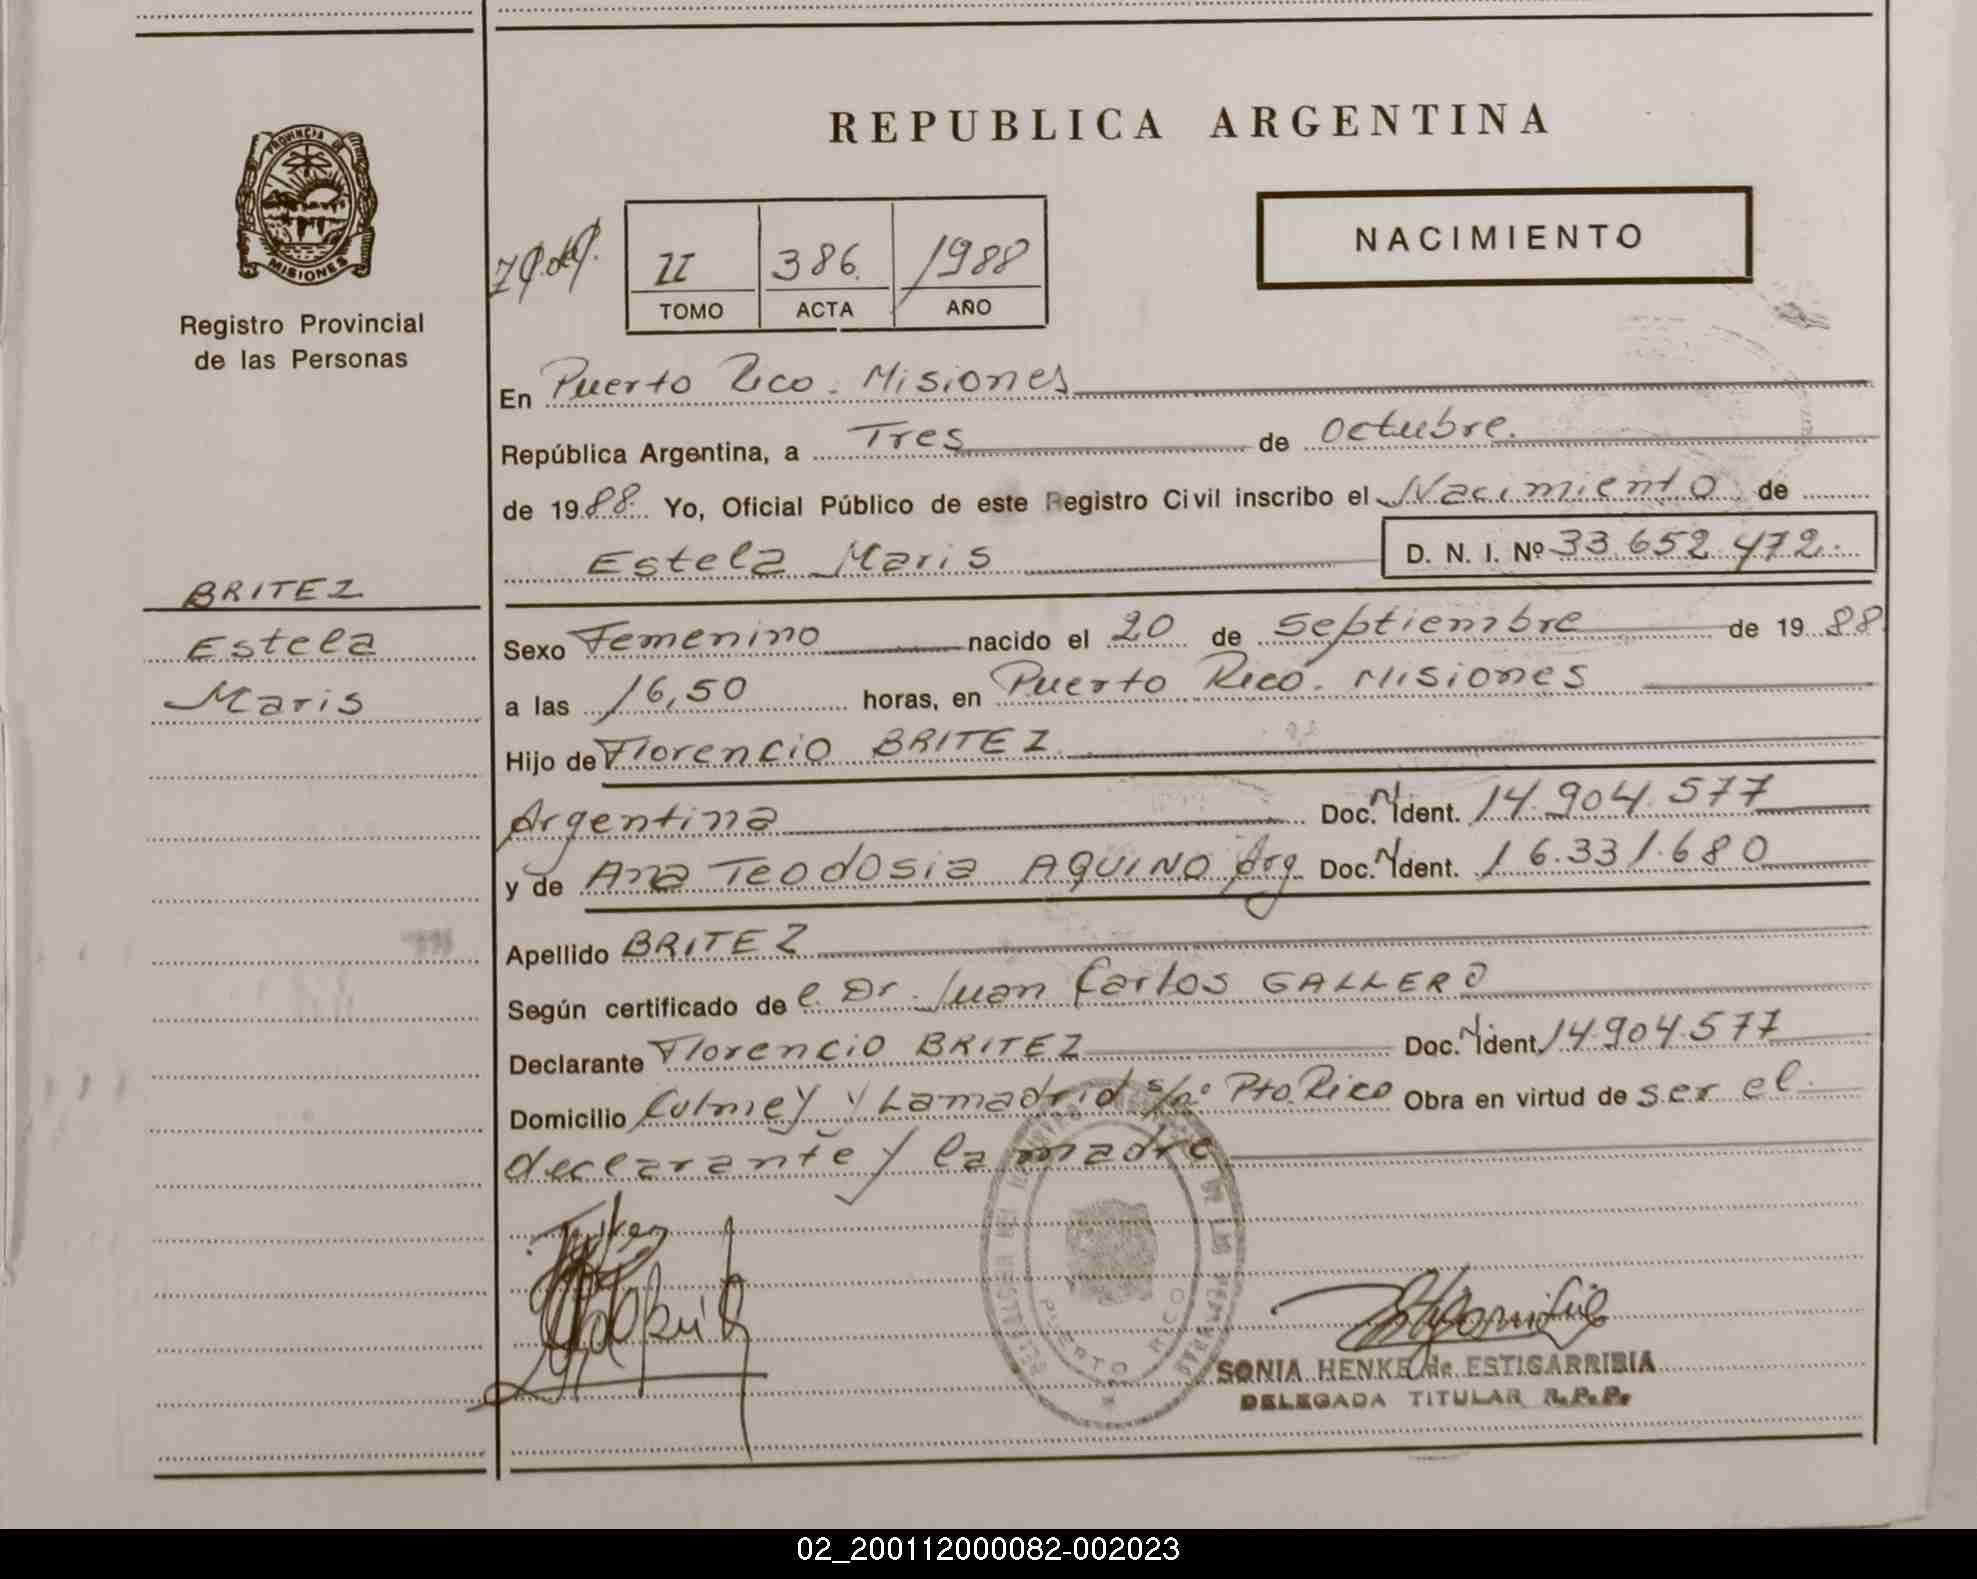 REPUBLICA ARGENTINA
PROVINCIA DE
MISIONES
Registro Provincial
de las Personas
II 386 1988
TOMO ACTA AÑO
NACIMIENTO
En Puerto Rico. Misiones
República Argentina, a Tres de Octubre.
de 1988. Yo, Oficial Público de este Registro Civil inscribo el Nacimiento de
Estela Maris D. N. I. Nº 33.652.472.
BRITEZ
Estela
Maris
Sexo Femenino nacido el 20 de Septiembre de 1988
a las 16,50 horas, en Puerto Rico. Misiones
Hijo de Florencio BRITEZ
Argentina Doc. N Ident. 14.904.577
y de Ana Teodosia AQUINO Arg Doc. N Ident. 16.331.680
Apellido BRITEZ
Según certificado de l. Dr. Juan Carlos GALLERO
Declarante Florencio BRITEZ Doc. N Ident. 14.904.577
Domicilio Culmey y Lamadrid s/nº Pto. Rico Obra en virtud de ser el
declarante y la madre
PUERTO RICO
SONIA HENKE de ESTIGARRIBIA
DELEGADA TITULAR R.P.P.
02_200112000082-002023